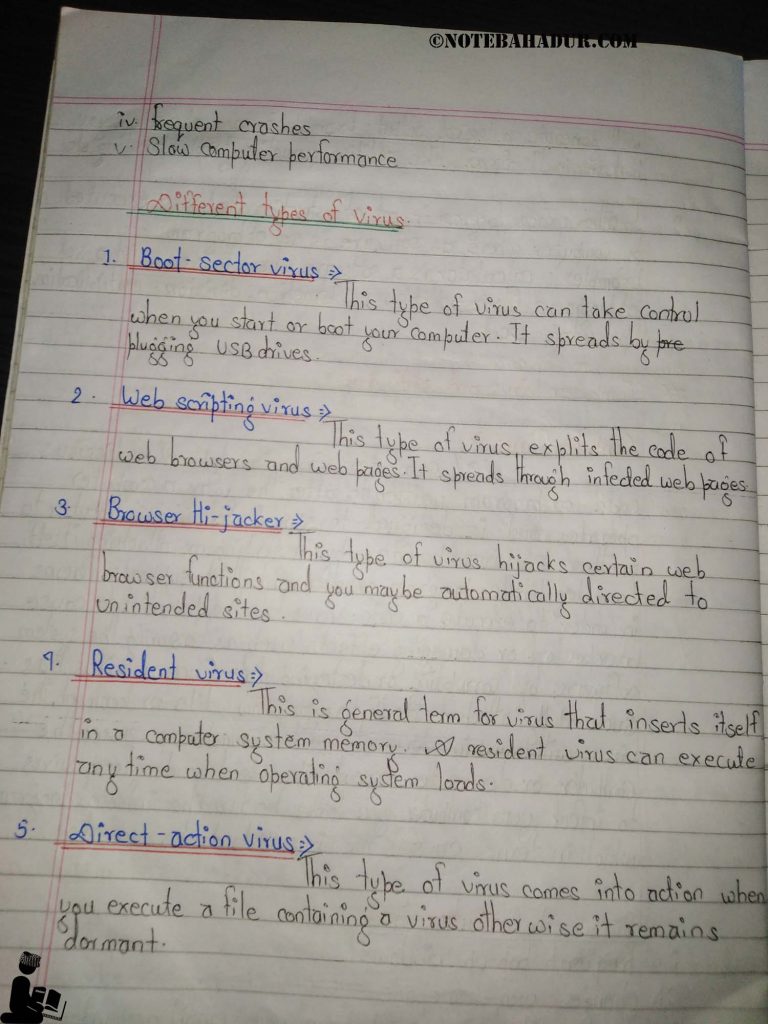 ©NOTEBAHADUR.COM
iv. frequent crashes
v. Slow computer performance
Different types of virus.
1. Boot-sector virus :⇒
This type of virus can take control
when you start or boot your computer. It spreads by pre
plugging USB drives.
2. Web scripting virus :⇒
This type of virus, explits the code of
web browsers and web pages. It spreads through infected web pages.
3. Browser Hi-jacker :⇒
This type of virus hijacks certain web
browser functions and you maybe automatically directed to
unintended sites.
4. Resident virus :⇒
This is general term for virus that inserts itself
in a computer system memory. A resident virus can execute
any time when operating system loads.
5. Direct-action virus :⇒
This type of virus comes into action when
you execute a file containing a virus otherwise it remains
dormant.